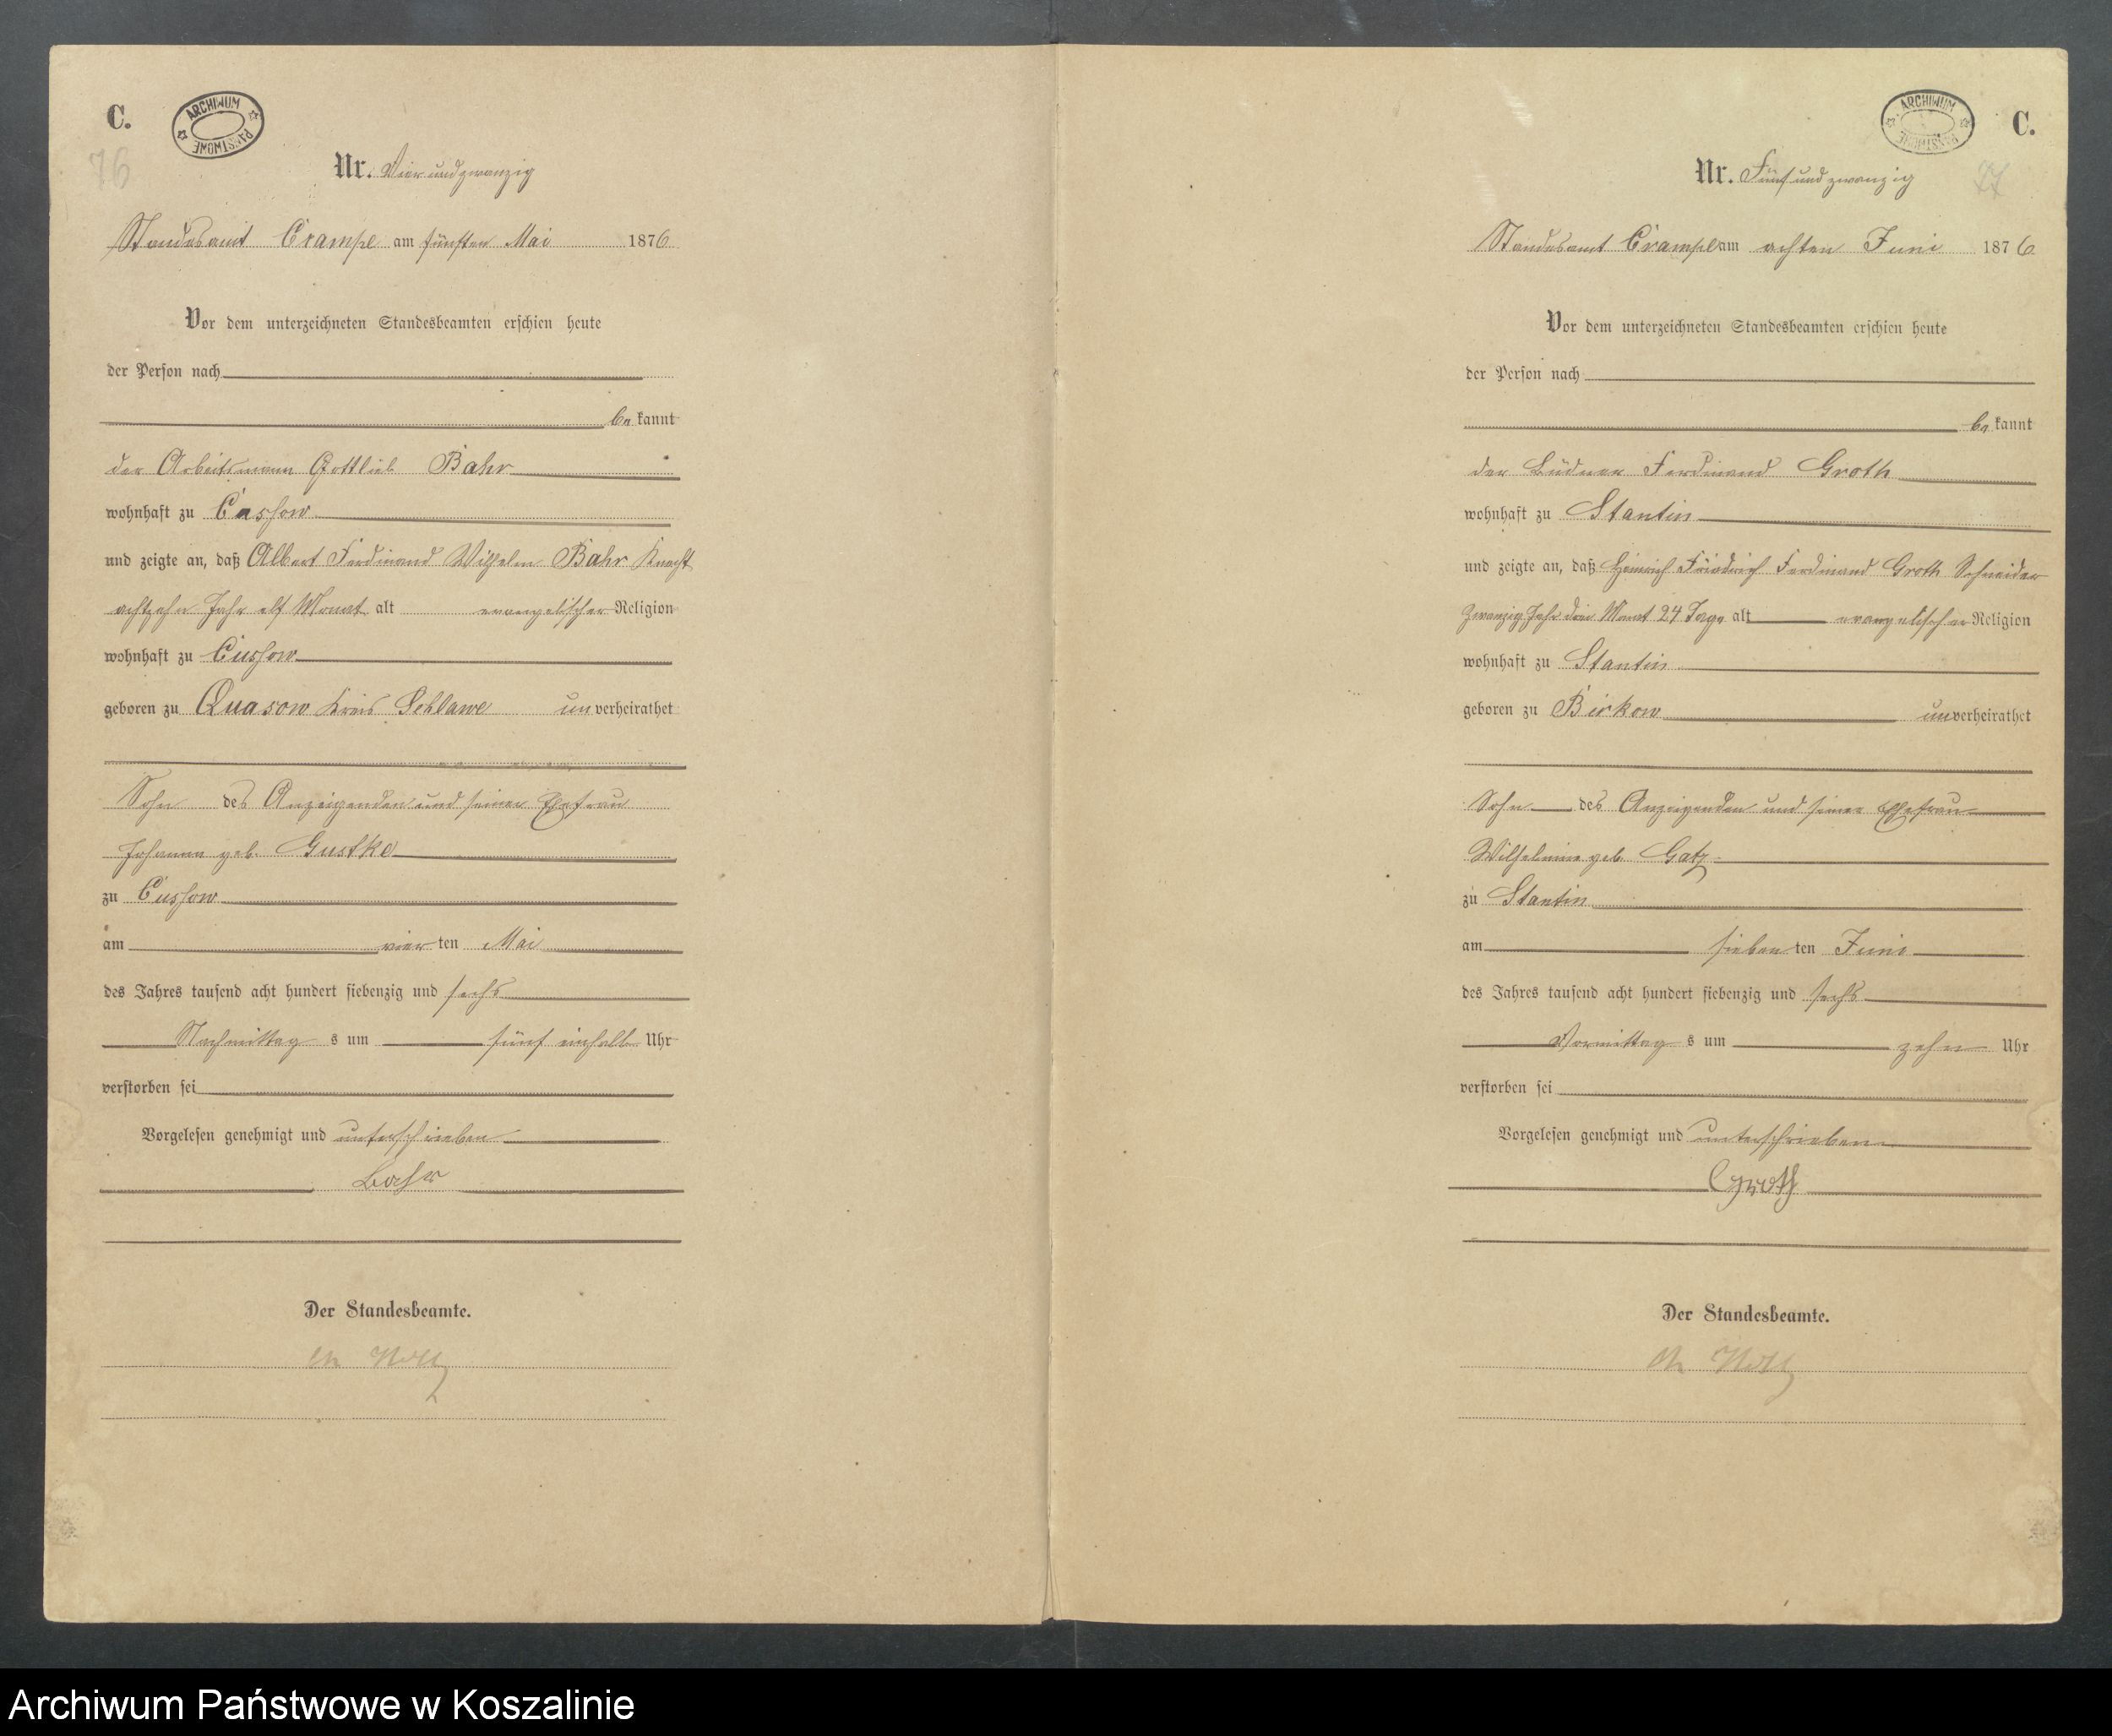 C.
ARCHIWUM PAŃSTWOWE
76
Nr. Vier und zwanzig
Standesamt Crampe am fünften Mai 1876
Vor dem unterzeichneten Standesbeamten erschien heute
der Person nach
bekannt
der Arbeitsmann Gottlieb Bahr
wohnhaft zu Cussow
und zeigte an, daß Albert Ferdinand Wilhelm Bahr Knecht
achtzehn Jahr elf Monat alt evangelischer Religion
wohnhaft zu Cussow
geboren zu Quasow Kreis Schlawe unverheirathet
Sohn des Anzeigenden und seiner Ehefrau
Johanne geb. Gustke
zu Cussow
am vierten Mai
des Jahres tausend acht hundert siebenzig und sechs
Nachmittags um fünf einhalb Uhr
verstorben sei
Vorgelesen genehmigt und unterschrieben
Bahr
Der Standesbeamte.
C.
ARCHIWUM PAŃSTWOWE
77
Nr. Fünf und zwanzig
Standesamt Crampe am achten Juni 1876
Vor dem unterzeichneten Standesbeamten erschien heute
der Person nach
bekannt
der Büdner Ferdinand Groth
wohnhaft zu Stantin
und zeigte an, daß Heinrich Friedrich Ferdinand Groth Schneider
zwanzig Jahr drei Monat 24 Tage alt evangelischer Religion
wohnhaft zu Stantin
geboren zu Birkow unverheirathet
Sohn des Anzeigenden und seiner Ehefrau
Wilhelmine geb. Gatz
zu Stantin
am siebenten Juni
des Jahres tausend acht hundert siebenzig und sechs
Vormittags um zehn Uhr
verstorben sei
Vorgelesen genehmigt und unterschrieben
Groth
Der Standesbeamte.
Archiwum Państwowe w Koszalinie